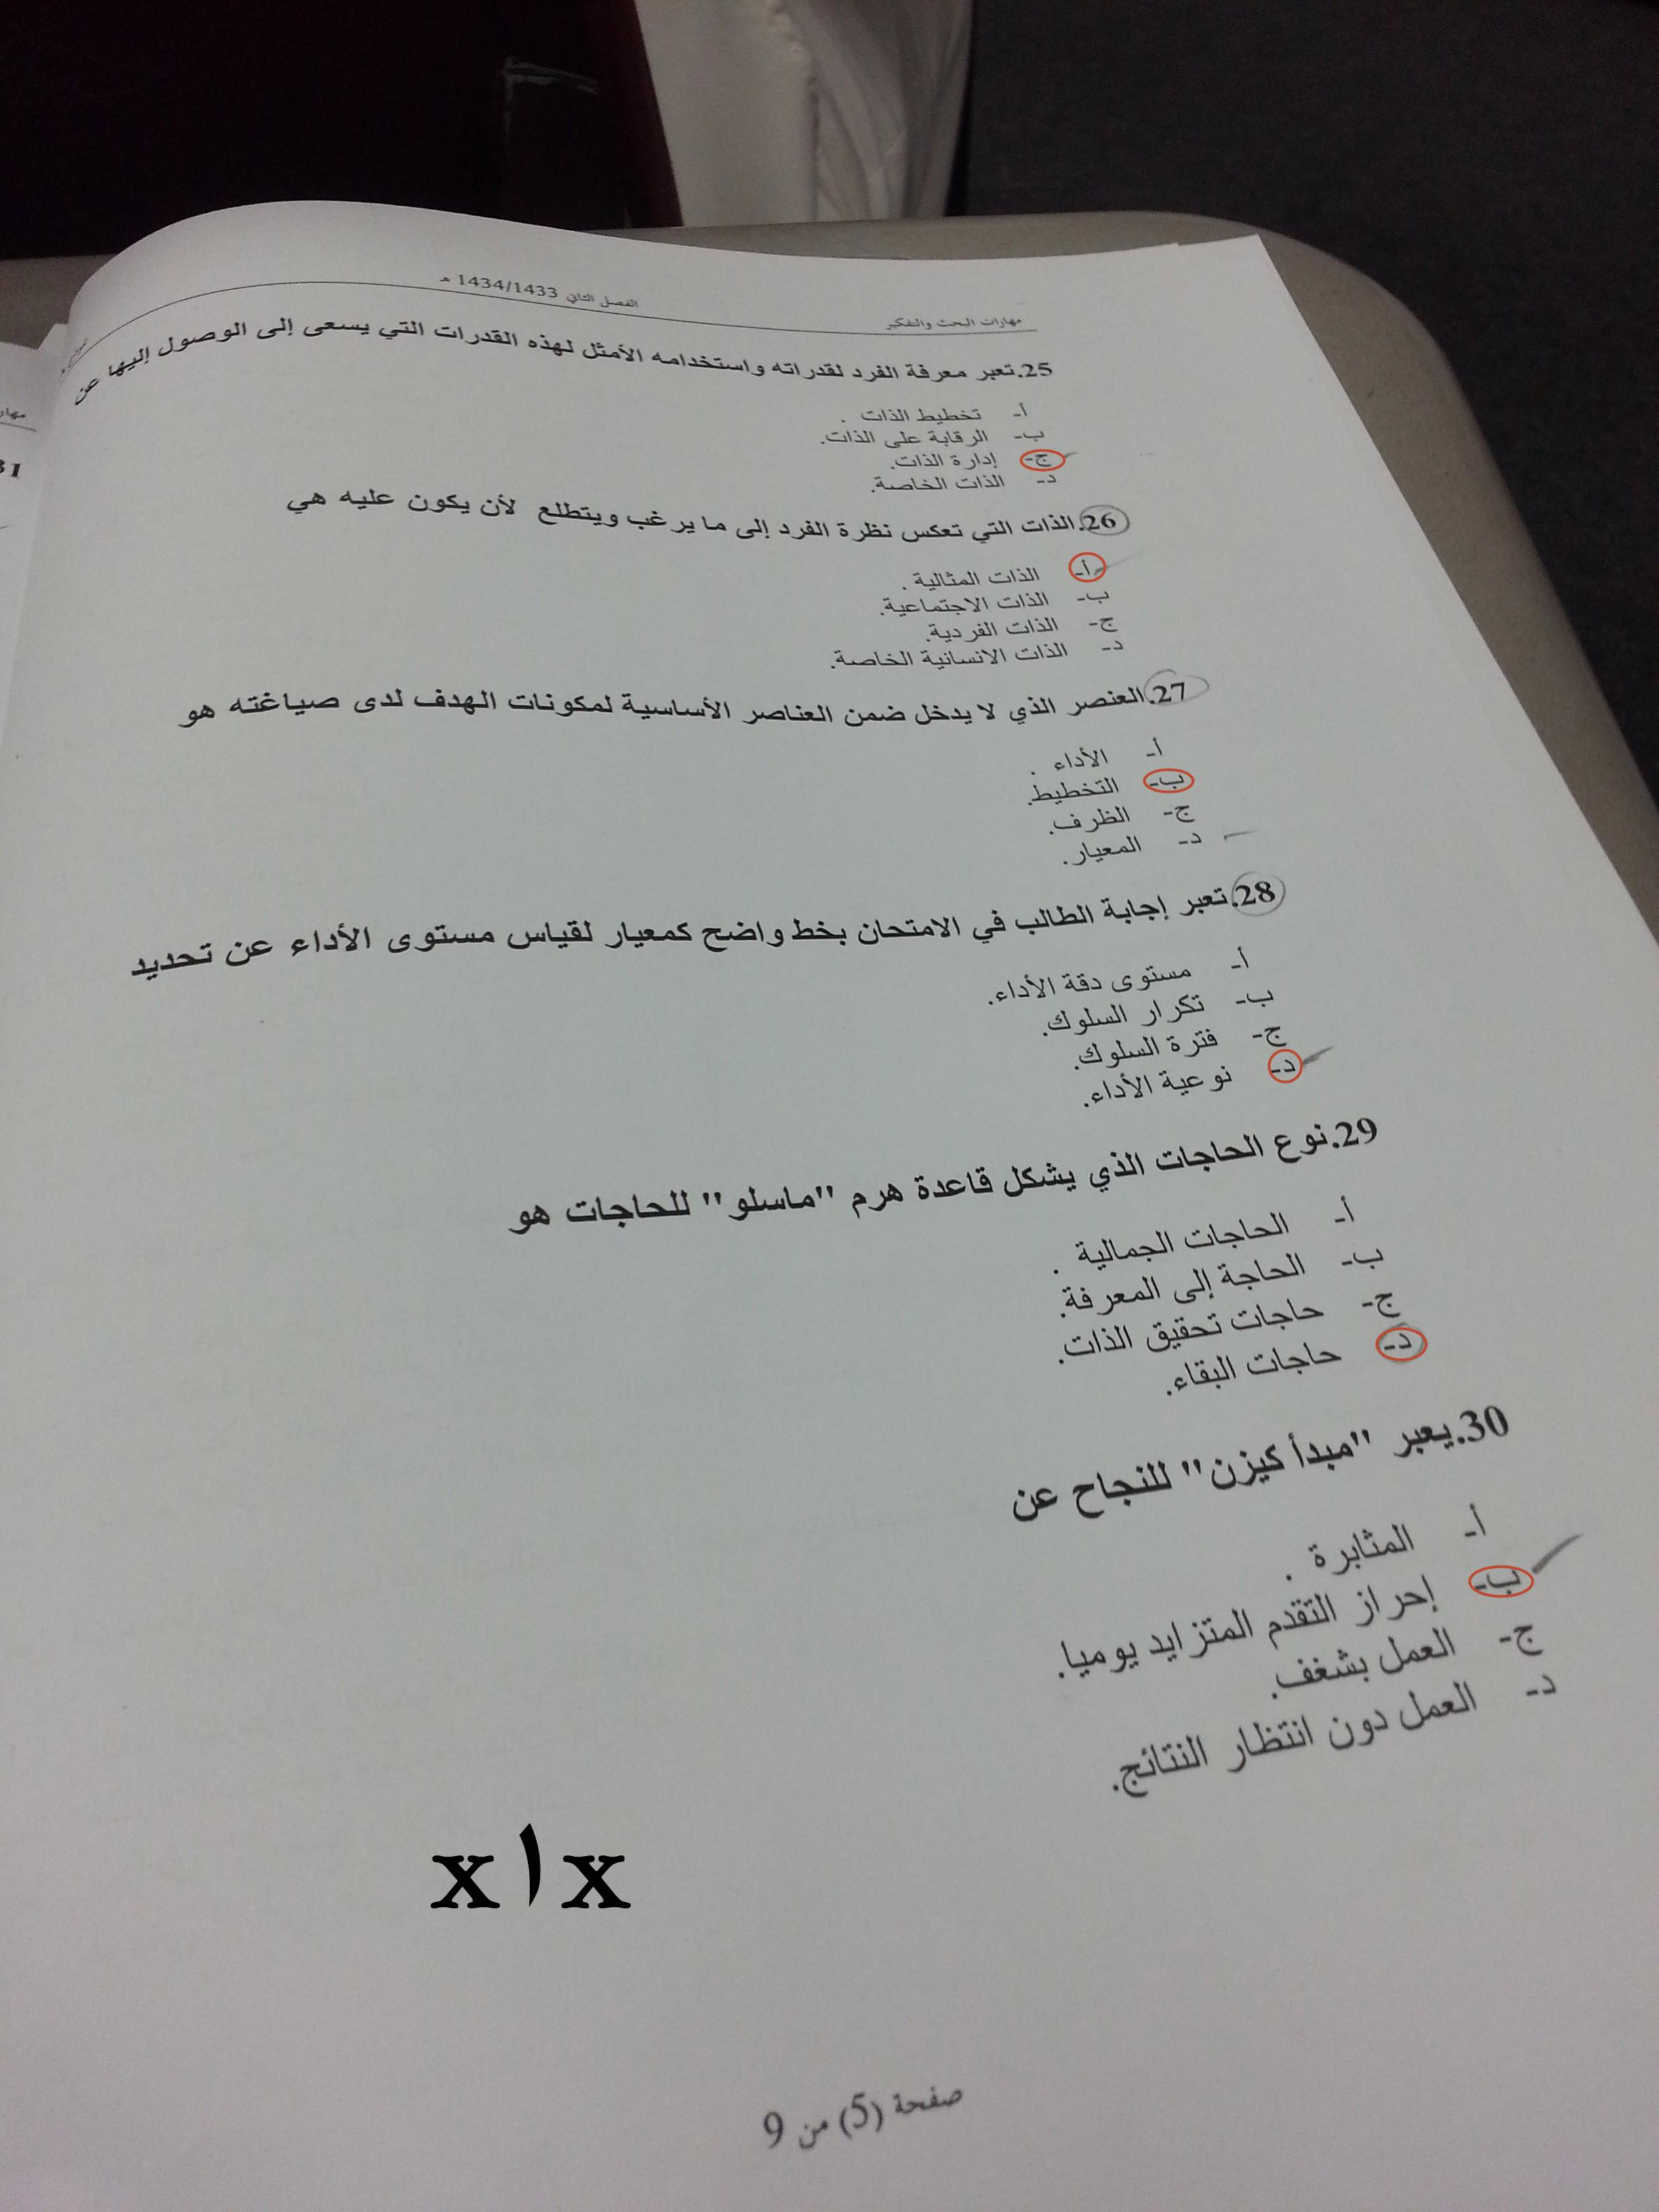 مهارات البحث والتفكير
الفصل الثاني 1434/1433 هـ
25.تعبر معرفة الفرد لقدراته واستخدامه الأمثل لهذه القدرات التي يسعى إلى الوصول إليها عن
أ- تخطيط الذات .
ب- الرقابة على الذات.
ج- إدارة الذات.
د- الذات الخاصة.
26.الذات التي تعكس نظرة الفرد إلى ما يرغب ويتطلع لأن يكون عليه هي
أ- الذات المثالية .
ب- الذات الاجتماعية.
ج- الذات الفردية.
د- الذات الانسانية الخاصة.
27.العنصر الذي لا يدخل ضمن العناصر الأساسية لمكونات الهدف لدى صياغته هو
أ- الأداء .
ب- التخطيط.
ج- الظرف.
د- المعيار.
28.تعبر إجابة الطالب في الامتحان بخط واضح كمعيار لقياس مستوى الأداء عن تحديد
أ- مستوى دقة الأداء.
ب- تكرار السلوك.
ج- فترة السلوك.
د- نوعية الأداء.
29.نوع الحاجات الذي يشكل قاعدة هرم "ماسلو" للحاجات هو
أ- الحاجات الجمالية .
ب- الحاجة إلى المعرفة.
ج- حاجات تحقيق الذات.
د- حاجات البقاء.
30.يعبر "مبدأ كيزن" للنجاح عن
أ- المثابرة .
ب- إحراز التقدم المتزايد يوميا.
ج- العمل بشغف.
د- العمل دون انتظار النتائج.
x ا x
صفحة (5) من 9
مهار
31